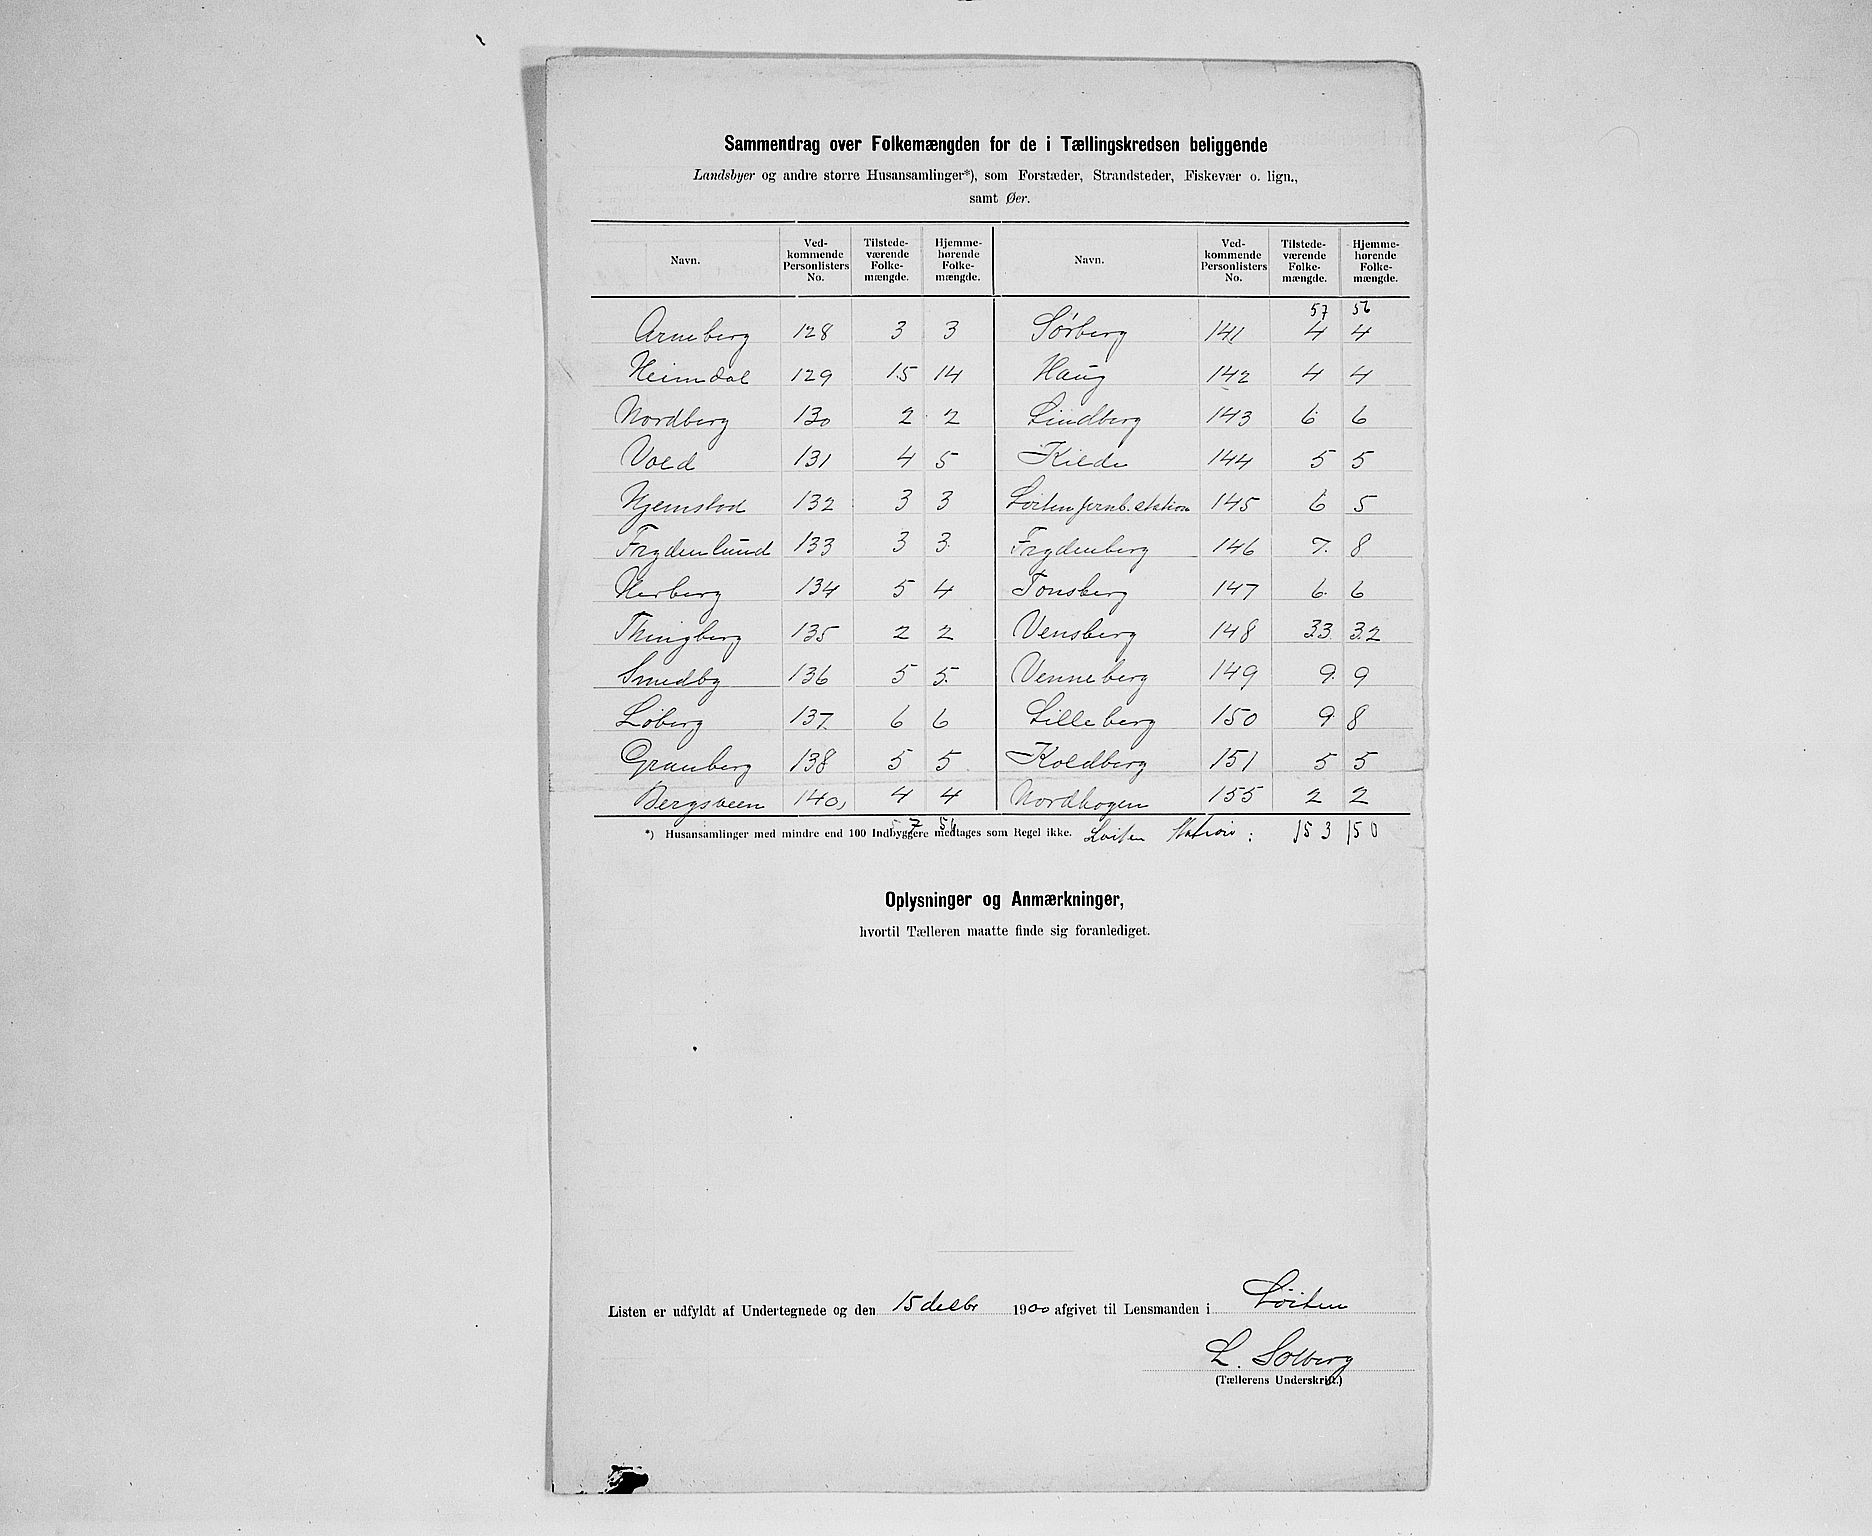 Sammendrag over Folkemængden for de i Tællingskredsen beliggende
Landsbyer og andre større Husansamlinger*), som Forstæder, Strandsteder, Fiskevær o. lign.,
samt Øer.
Navn. Ved-kommende Personlisters No. Tilstede-værende Folke-mængde. Hjemme-hørende Folke-mængde. Navn. Ved-kommende Personlisters No. Tilstede-værende Folke-mængde. Hjemme-hørende Folke-mængde.
57 56
Arneberg 128 3 3 Sørberg 141 4 4
Heimdal 129 15 14 Haug 142 4 4
Nordberg 130 2 2 Lindberg 143 6 6
Vold 131 4 5 Kilde 144 5 5
Hjemstad 132 3 3 Løiten jernb. station 145 6 5
Frydenlund 133 3 3 Frydenberg 146 7 8
Herberg 134 5 4 Tonsberg 147 6 6
Thingberg 135 2 2 Vensberg 148 33 32
Smedby 136 5 5 Venneberg 149 9 9
Løberg 137 6 6 Lilleberg 150 9 8
Granberg 138 5 5 Koldberg 151 5 5
Bergsveen 140 4 4 Nordhagen 155 2 2
57 56
*) Husansamlinger med mindre end 100 Indbyggere medtages som Regel ikke. Løiten Station: 153 150
Oplysninger og Anmærkninger,
hvortil Tælleren maatte finde sig foranlediget.
Listen er udfyldt af Undertegnede og den 15 desbr 1900 afgivet til Lensmanden i Løiten
L. Solberg
(Tællerens Underskrift.)